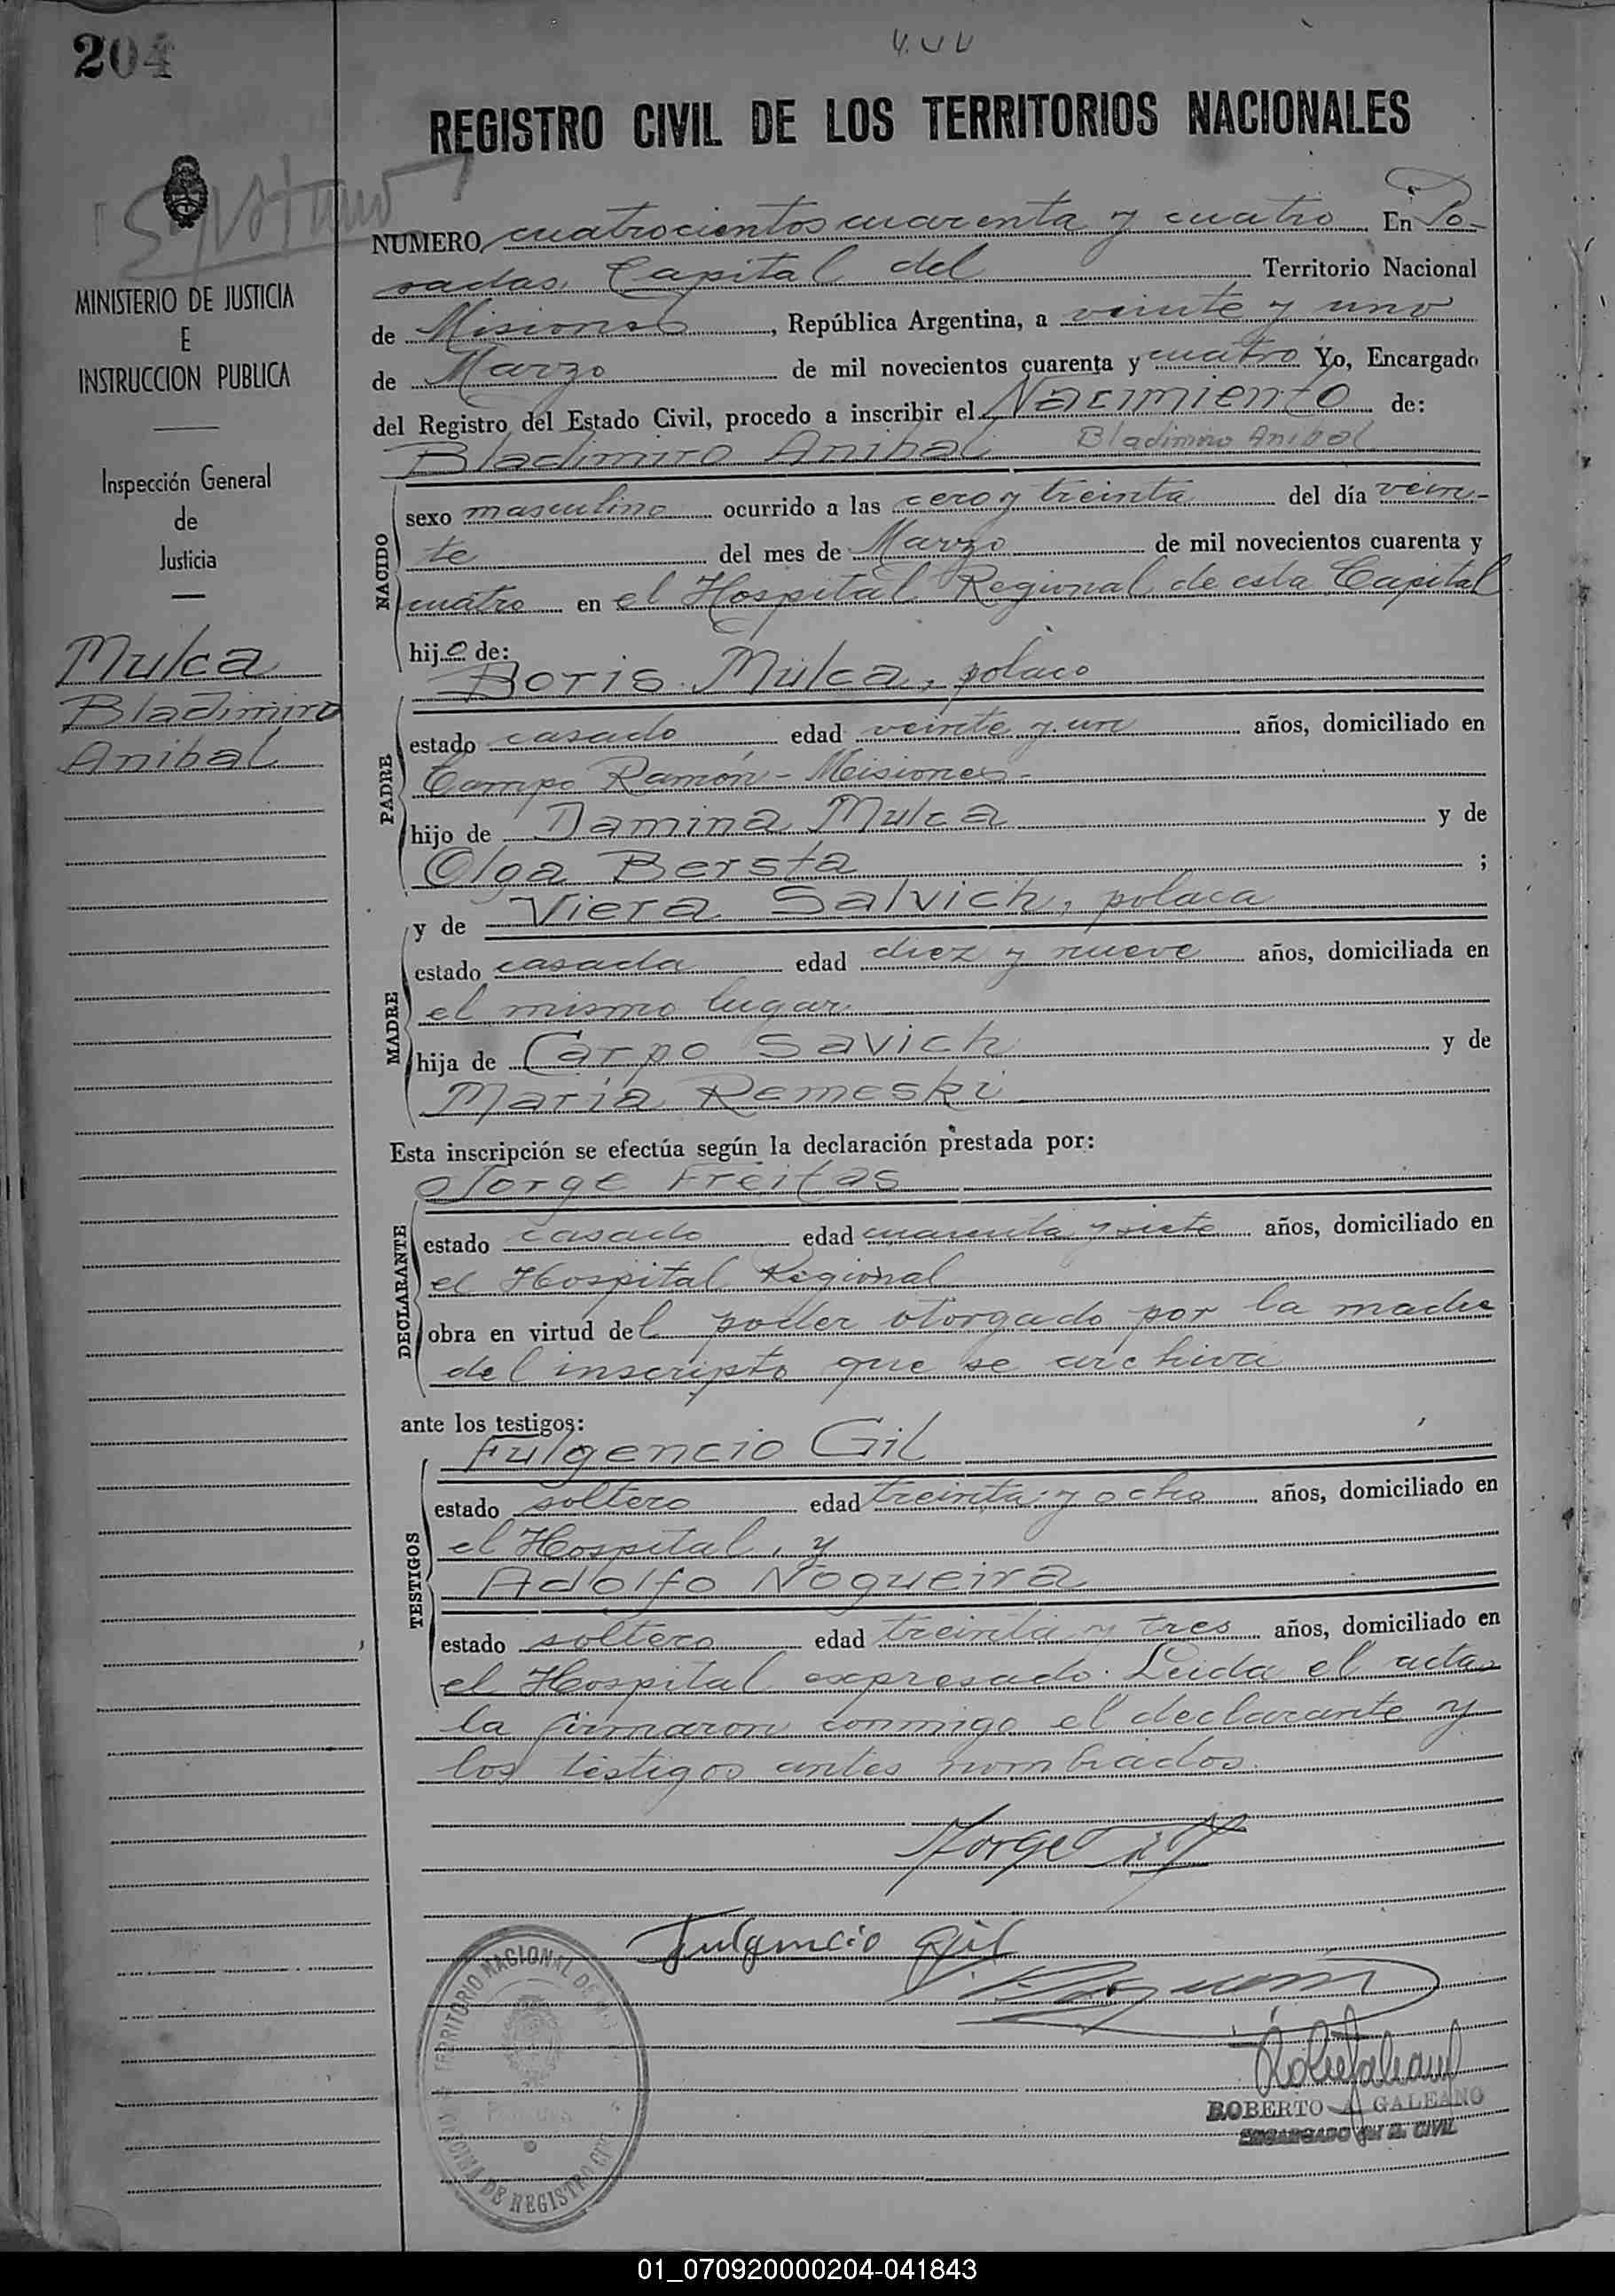 204
REGISTRO CIVIL DE LOS TERRITORIOS NACIONALES
MINISTERIO DE JUSTICIA
E
INSTRUCCION PUBLICA
Inspección General
de
Justicia
Mulca
Bladimiro
Anibal
NUMERO cuatrocientos cuarenta y cuatro En Po-
sadas, Capital del Territorio Nacional
de Misiones, República Argentina, a veinte y uno
de Marzo de mil novecientos cuarenta y cuatro Yo, Encargado
del Registro del Estado Civil, procedo a inscribir el Nacimiento de:
Bladimiro Anibal Bladimiro Anibal
NACIDO
sexo masculino ocurrido a las cero y treinta del día vein-
te del mes de Marzo de mil novecientos cuarenta y
cuatro en el Hospital Regional de esta Capital
hijo de:
Boris Mulca, polaco
PADRE
estado casado edad veinte y un años, domiciliado en
Campo Ramón - Misiones -
hijo de Damina Mulca y de
Olga Bersta ;
y de Viera Salvich, polaca
MADRE
estado casada edad diez y nueve años, domiciliada en
el mismo lugar
hija de Carpo Savich y de
María Remeski
Esta inscripción se efectúa según la declaración prestada por:
Jorge Freitas
DECLARANTE
estado casado edad cuarenta y siete años, domiciliado en
el Hospital Regional
obra en virtud del poder otorgado por la madre
del inscripto que se archiva
ante los testigos:
Fulgencio Gil
TESTIGOS
estado soltero edad treinta y ocho años, domiciliado en
el Hospital, y
Adolfo Nogueira
estado soltero edad treinta y tres años, domiciliado en
el Hospital expresado. Leida el acta
la firmaron conmigo el declarante y
los testigos antes nombrados.
Jorge
Fulgencio Gil
TERRITORIO NACIONAL DE
OFICINA DE REGISTRO CIVIL
ROBERTO A. GALEANO
ENCARGADO DEL R. CIVIL
01_070920000204-041843